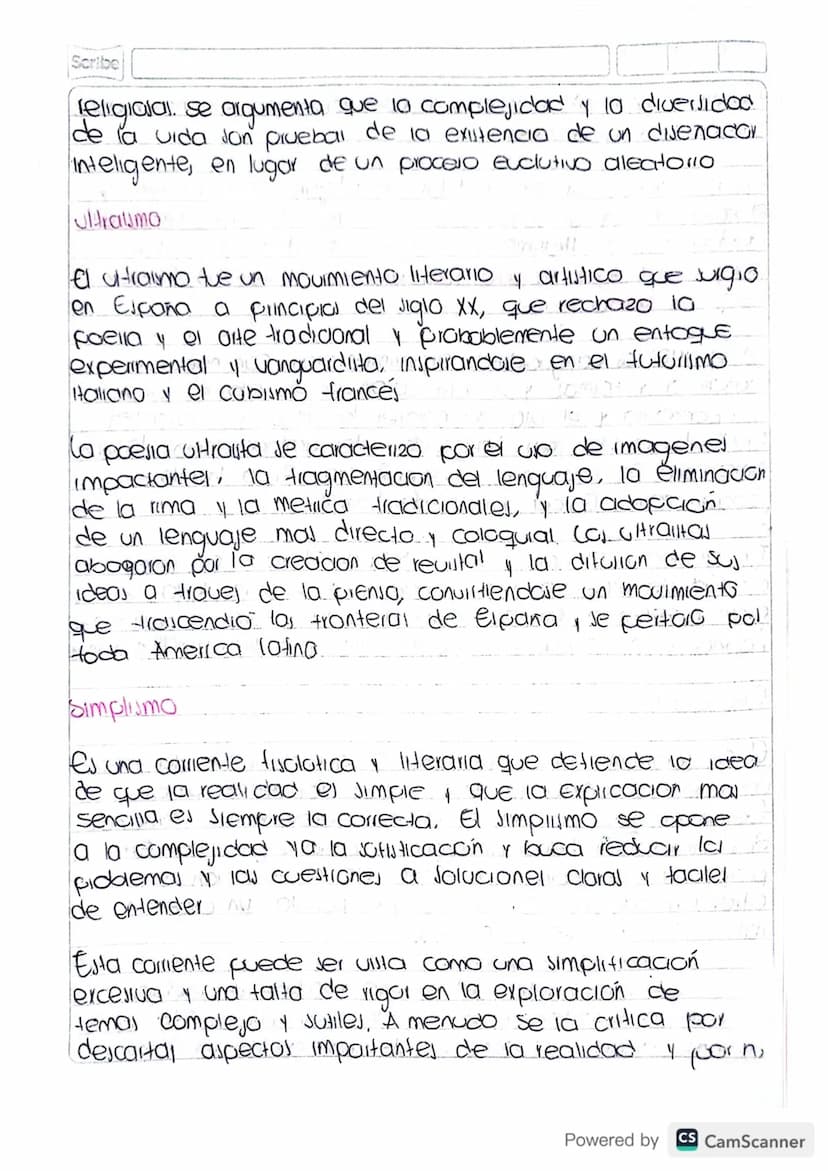 Scribe
religiosas. se argumenta que la complejidad y la diversidad
de la vida son pruebas de la existencia de un diseñador
inteligente, en lugar de un proceso evolutivo aleatorio
Ultraismo
El ultraismo fue un movimiento literario y artistico que surgio
en España a principios del siglo XX, que rechazo la
poesia y el arte tradicional y probablemente un enfoque
experimental y vanguardista, inspirandose en el futurismo
italiano y el cubismo francés
La poesia ultraista se caracterizo por el uso de imagenes
impactantes, la fragmentacion del lenguaje, la eliminacion
de la rima y la metrica tradicionales, y la adopción
de un lenguaje mas directo y coloquial Los ultraistas
abogaron por la creacion de revistas y la difusion de sus
ideas a traves de la prensa, convirtiendose un movimiento
que trascendio las fronteras de España, se por
toda America latina
Simplismo
Es una corriente y literaria que defiende la idea
de que la realidad es simple, que la explicacion mas
sencilla es siempre la correcta. El simplismo se opone
a la complejidad y a la sofisticacción y busca reducir los
problemas y las cuestiones a soluciones claras y faciles
de entender
Esta corriente puede ser vista como una simplificación
excesiva y una falta de rigor en la exploración de
temas complejo y sutiles. A menudo se la critica por
descartas aspectos importantes de la realidad y por n
Powered by CS CamScanner